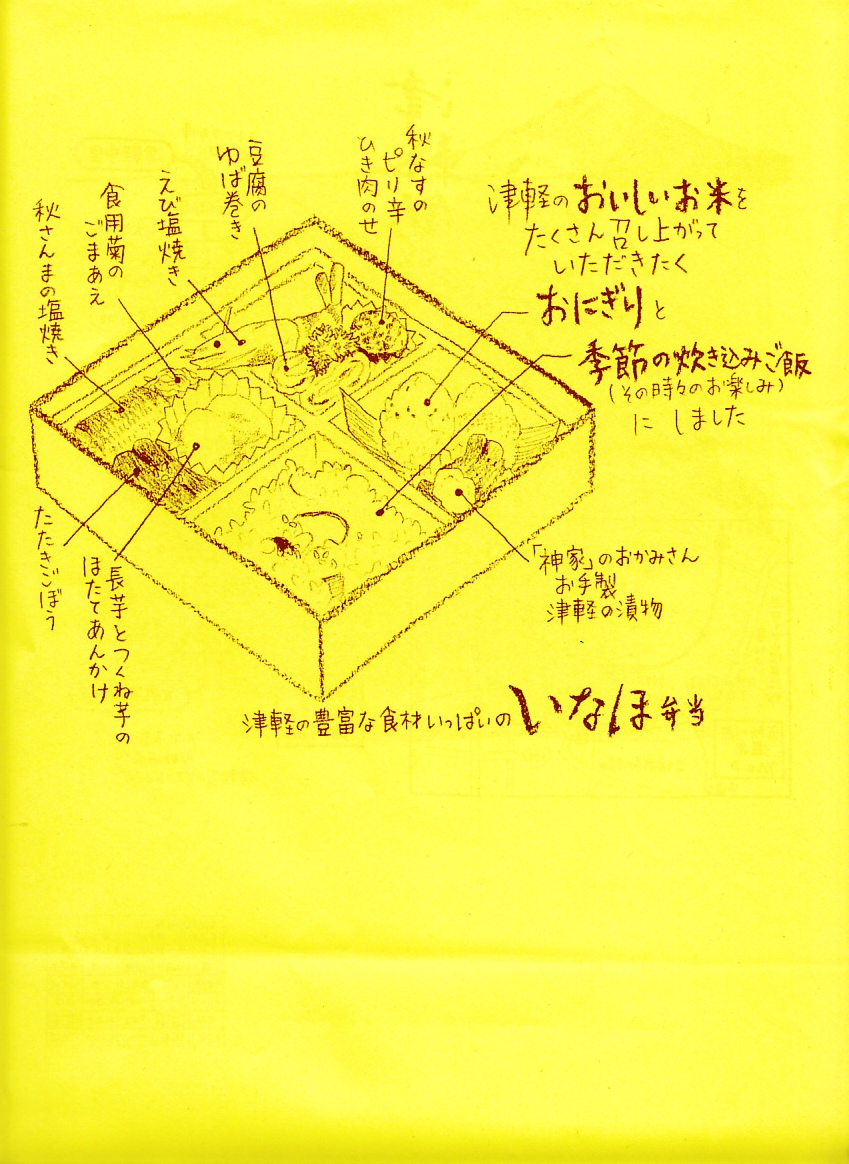 秋なすの
ピリ辛
ひき肉のせ
豆腐の
ゆば巻き
えび塩焼き
食用菊の
ごまあえ
秋さんまの塩焼き
津軽のおいしいお米を
たくさん召し上がって
いただきたく
おにぎりと
季節の炊き込みご飯
(その時々のお楽しみ)
にしました
たたきごぼう
長芋とつくね芋の
ほたてあんかけ
「神家」のおかみさん
お手製
津軽の漬物
津軽の豊富な食材いっぱいの いなほ弁当